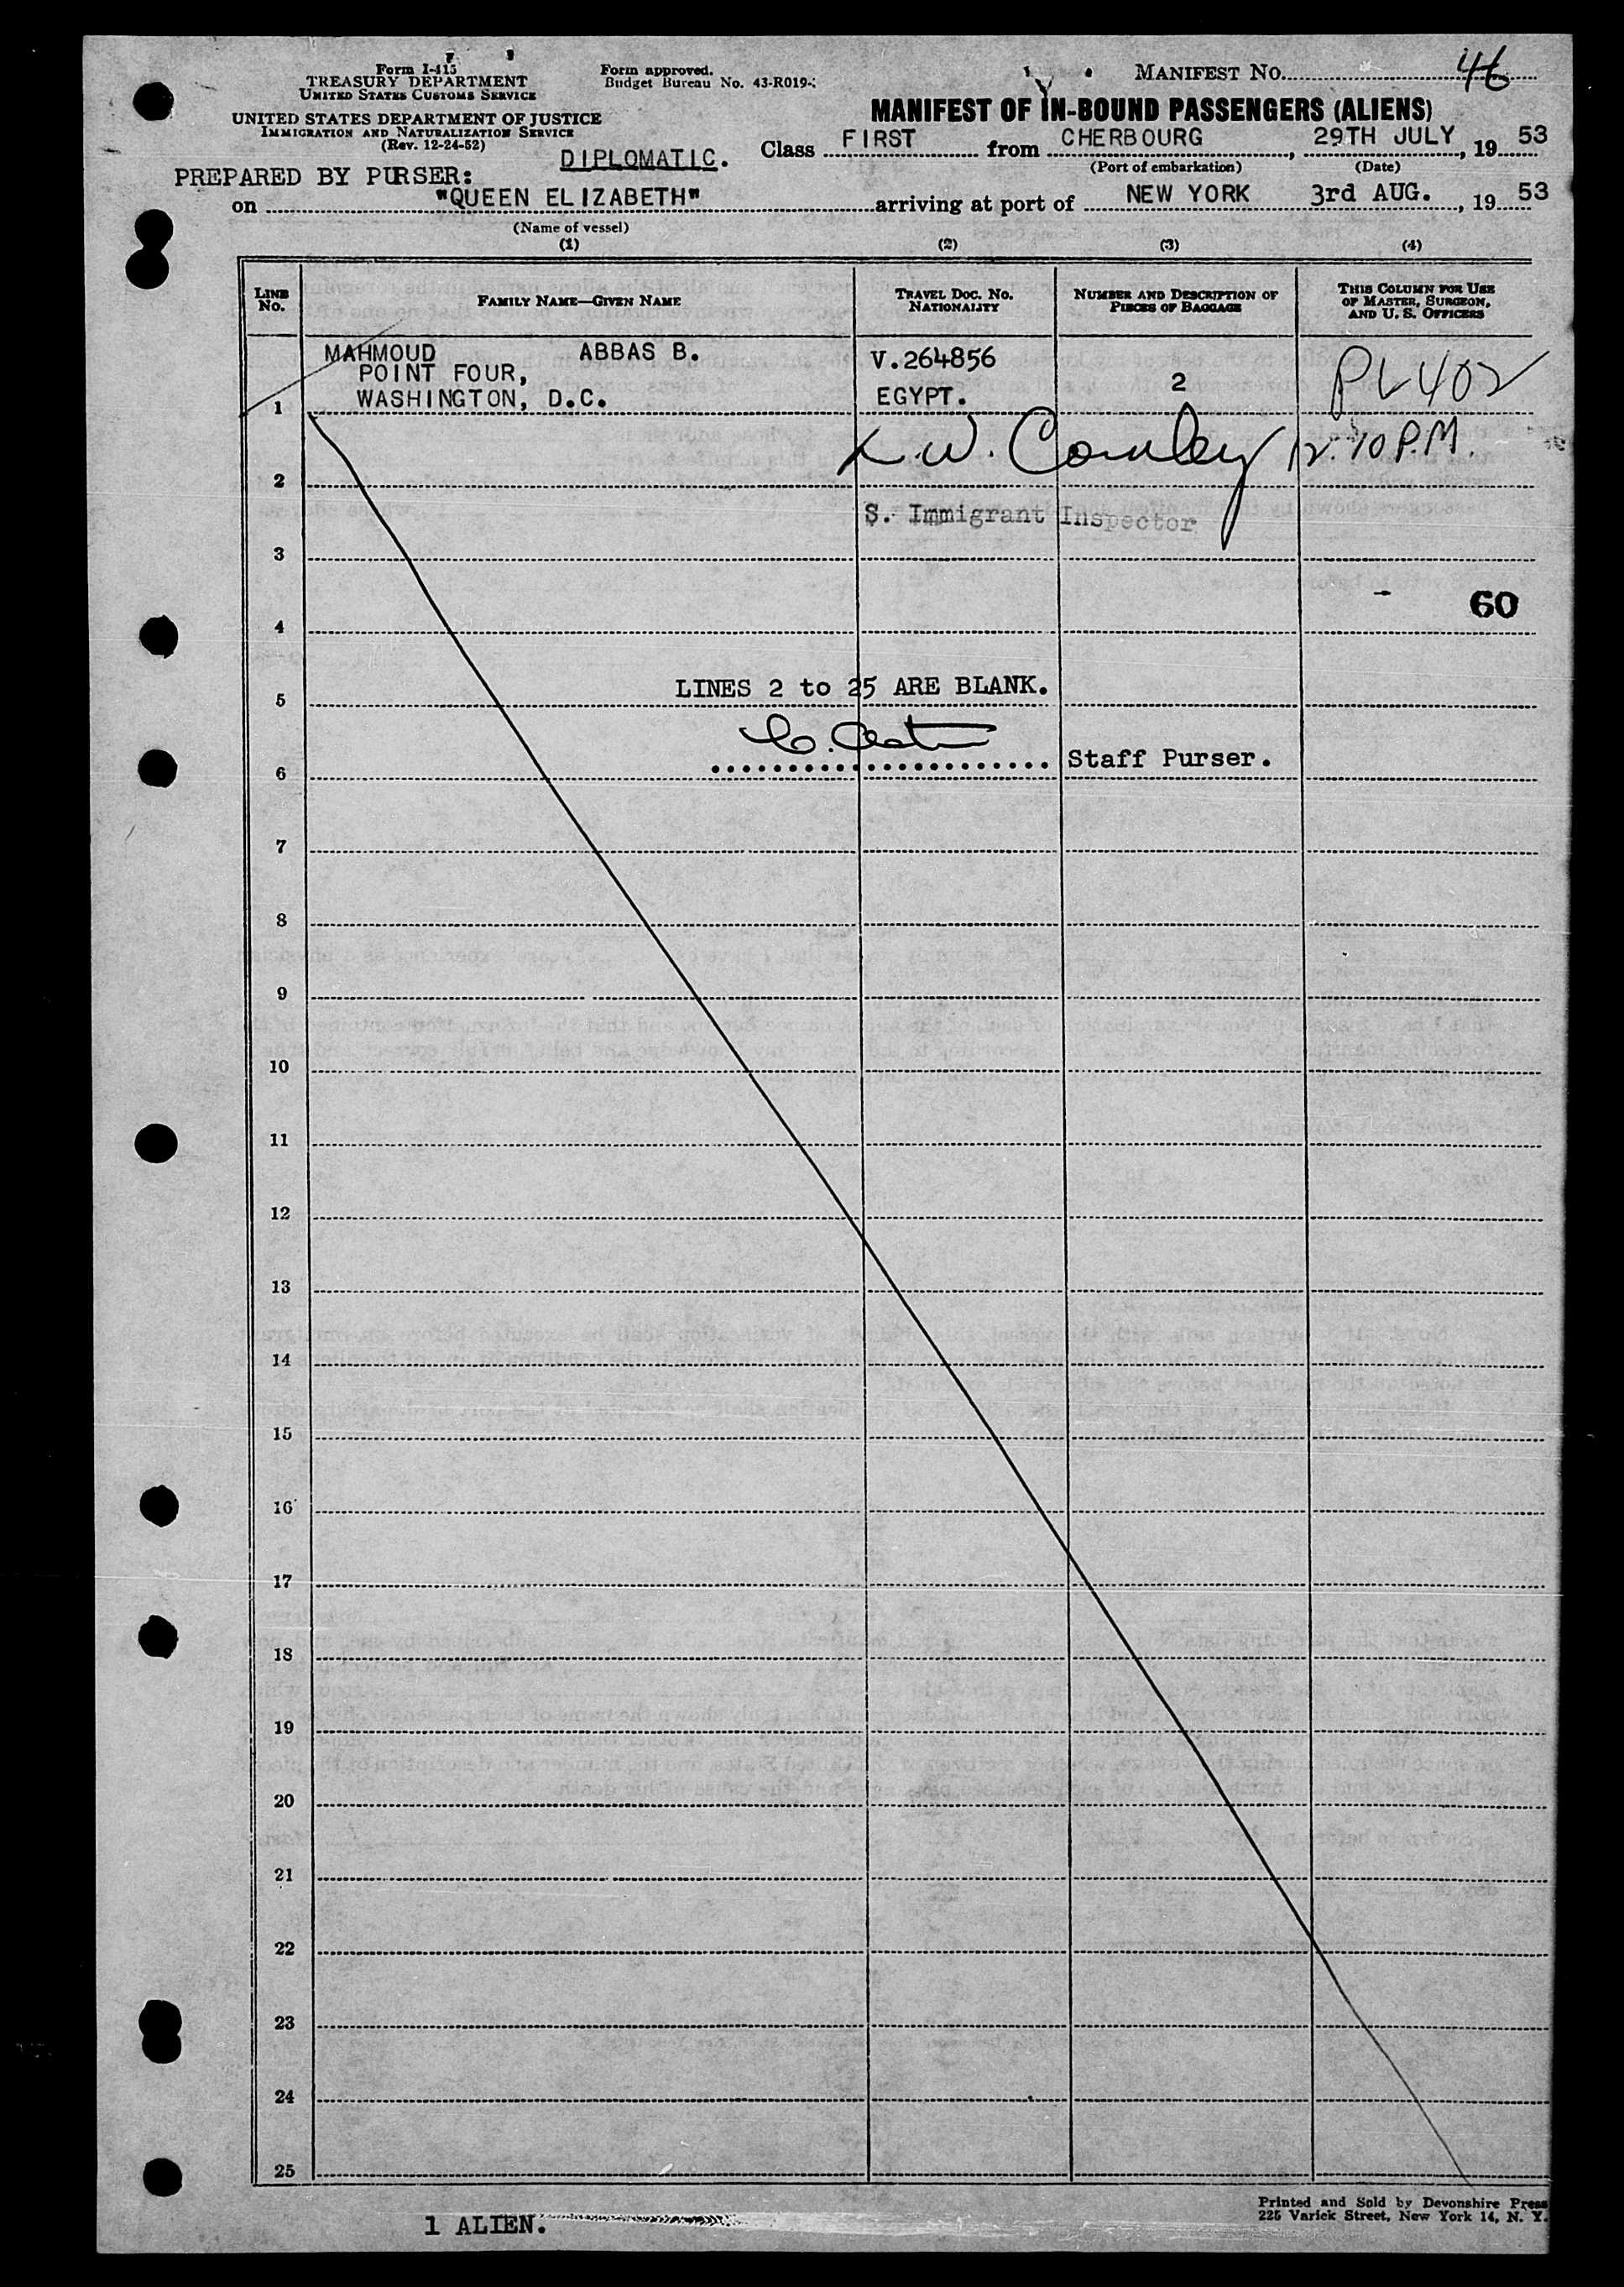 Form I-415
TREASURY DEPARTMENT
UNITED STATES CUSTOMS SERVICE
UNITED STATES DEPARTMENT OF JUSTICE
IMMIGRATION AND NATURALIZATION SERVICE
(Rev. 12-24-52)
Form approved.
Budget Bureau No. 43-R019-
MANIFEST NO. 46
MANIFEST OF IN-BOUND PASSENGERS (ALIENS)
DIPLOMATIC.
Class FIRST from CHERBOURG, 29TH JULY, 19 53
(Port of embarkation) (Date)
PREPARED BY PURSER:
on "QUEEN ELIZABETH" arriving at port of NEW YORK 3rd AUG., 19 53
(Name of vessel)
(1) (2) (3) (4)
LINE No. FAMILY NAME—GIVEN NAME TRAVEL DOC. NO. NATIONALITY NUMBER AND DESCRIPTION OF PIECES OF BAGGAGE THIS COLUMN FOR USE OF MASTER, SURGEON, AND U. S. OFFICERS
MAHMOUD ABBAS B. V.264856
POINT FOUR, 2 PL 402
1 WASHINGTON, D.C. EGYPT.
12.10 P.M.
2
S. Immigrant Inspector
3
60
4
LINES 2 to 25 ARE BLANK.
5
Staff Purser.
6
7
8
9
10
11
12
13
14
15
16
17
18
19
20
21
22
23
24
25
1 ALIEN.
Printed and Sold by Devonshire Press
225 Varick Street, New York 14, N. Y.